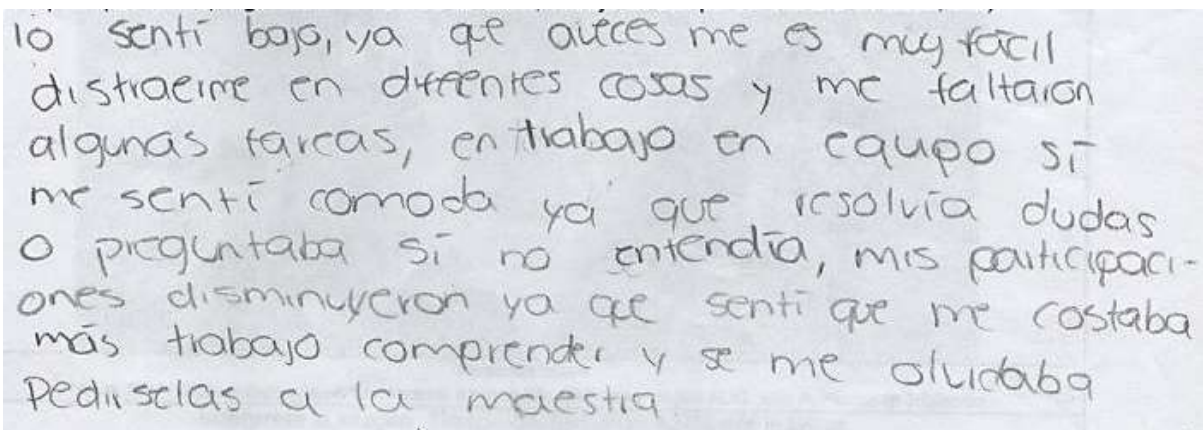 lo sentí bajo, ya que aveces me es muy fácil
distraerme en difeentes cosas y me faltaron
algunas tareas, en trabajo en equipo sí
me sentí comoda ya que resolvía dudas
o preguntaba sí no entendía, mis participaci-
ones disminuyeron ya que sentí que me costaba
más trabajo comprender y se me olvidaba
Pedirselas a la maestra